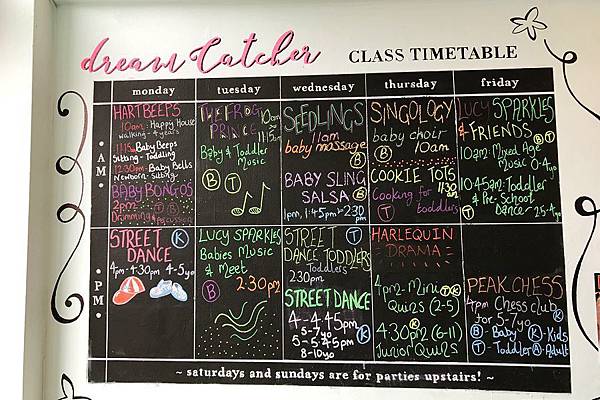 dream Catcher CLASS TIMETABLE
monday tuesday wednesday thursday friday
AM
HARTBEEPS
10am: Happy House
walking - 4 years
11:15 Baby Beeps
Sitting - Toddling
12:30pm Baby Bells
Newborn - Sitting.
BABY BONGOS
2pm
Drumming T B
Percussion
THE FROG
PRINCE 10am
11:15am
Baby & Toddler
Music
B T
SEEDLINGS
11am
baby massage
B
BABY SLING
SALSA B
1pm, 1:45pm & 2:30
pm
SINGOLOGY
baby choir
10am B
COOKIE TOTS
11:30
am
Cooking for
T toddlers
LUCY SPARKLES
& FRIENDS B T
10am Mixed Age
Music 0-4yo
10:45am Toddler
& Pre-School
T Dance - 2.5-4
yo
PM
STREET K
DANCE
4pm-4:30pm 4-5yo
LUCY SPARKLES
Babies Music
& Meet
B 2:30pm
STREET T
DANCE TODDLERS
Toddlers
2:30pm
STREET DANCE
4-4.45pm
5-7yo K
5-5.45pm
8-10yo K
HARLEQUIN
DRAMA
4pm-Mini T K
Quins (2-5)
4:30pm (6-11)
Junior Quins K
PEAK CHESS
4pm Chess club K
for 5-7yo
B - Baby K - Kids
T - Toddler A - Adult
~ saturdays and sundays are for parties upstairs! ~